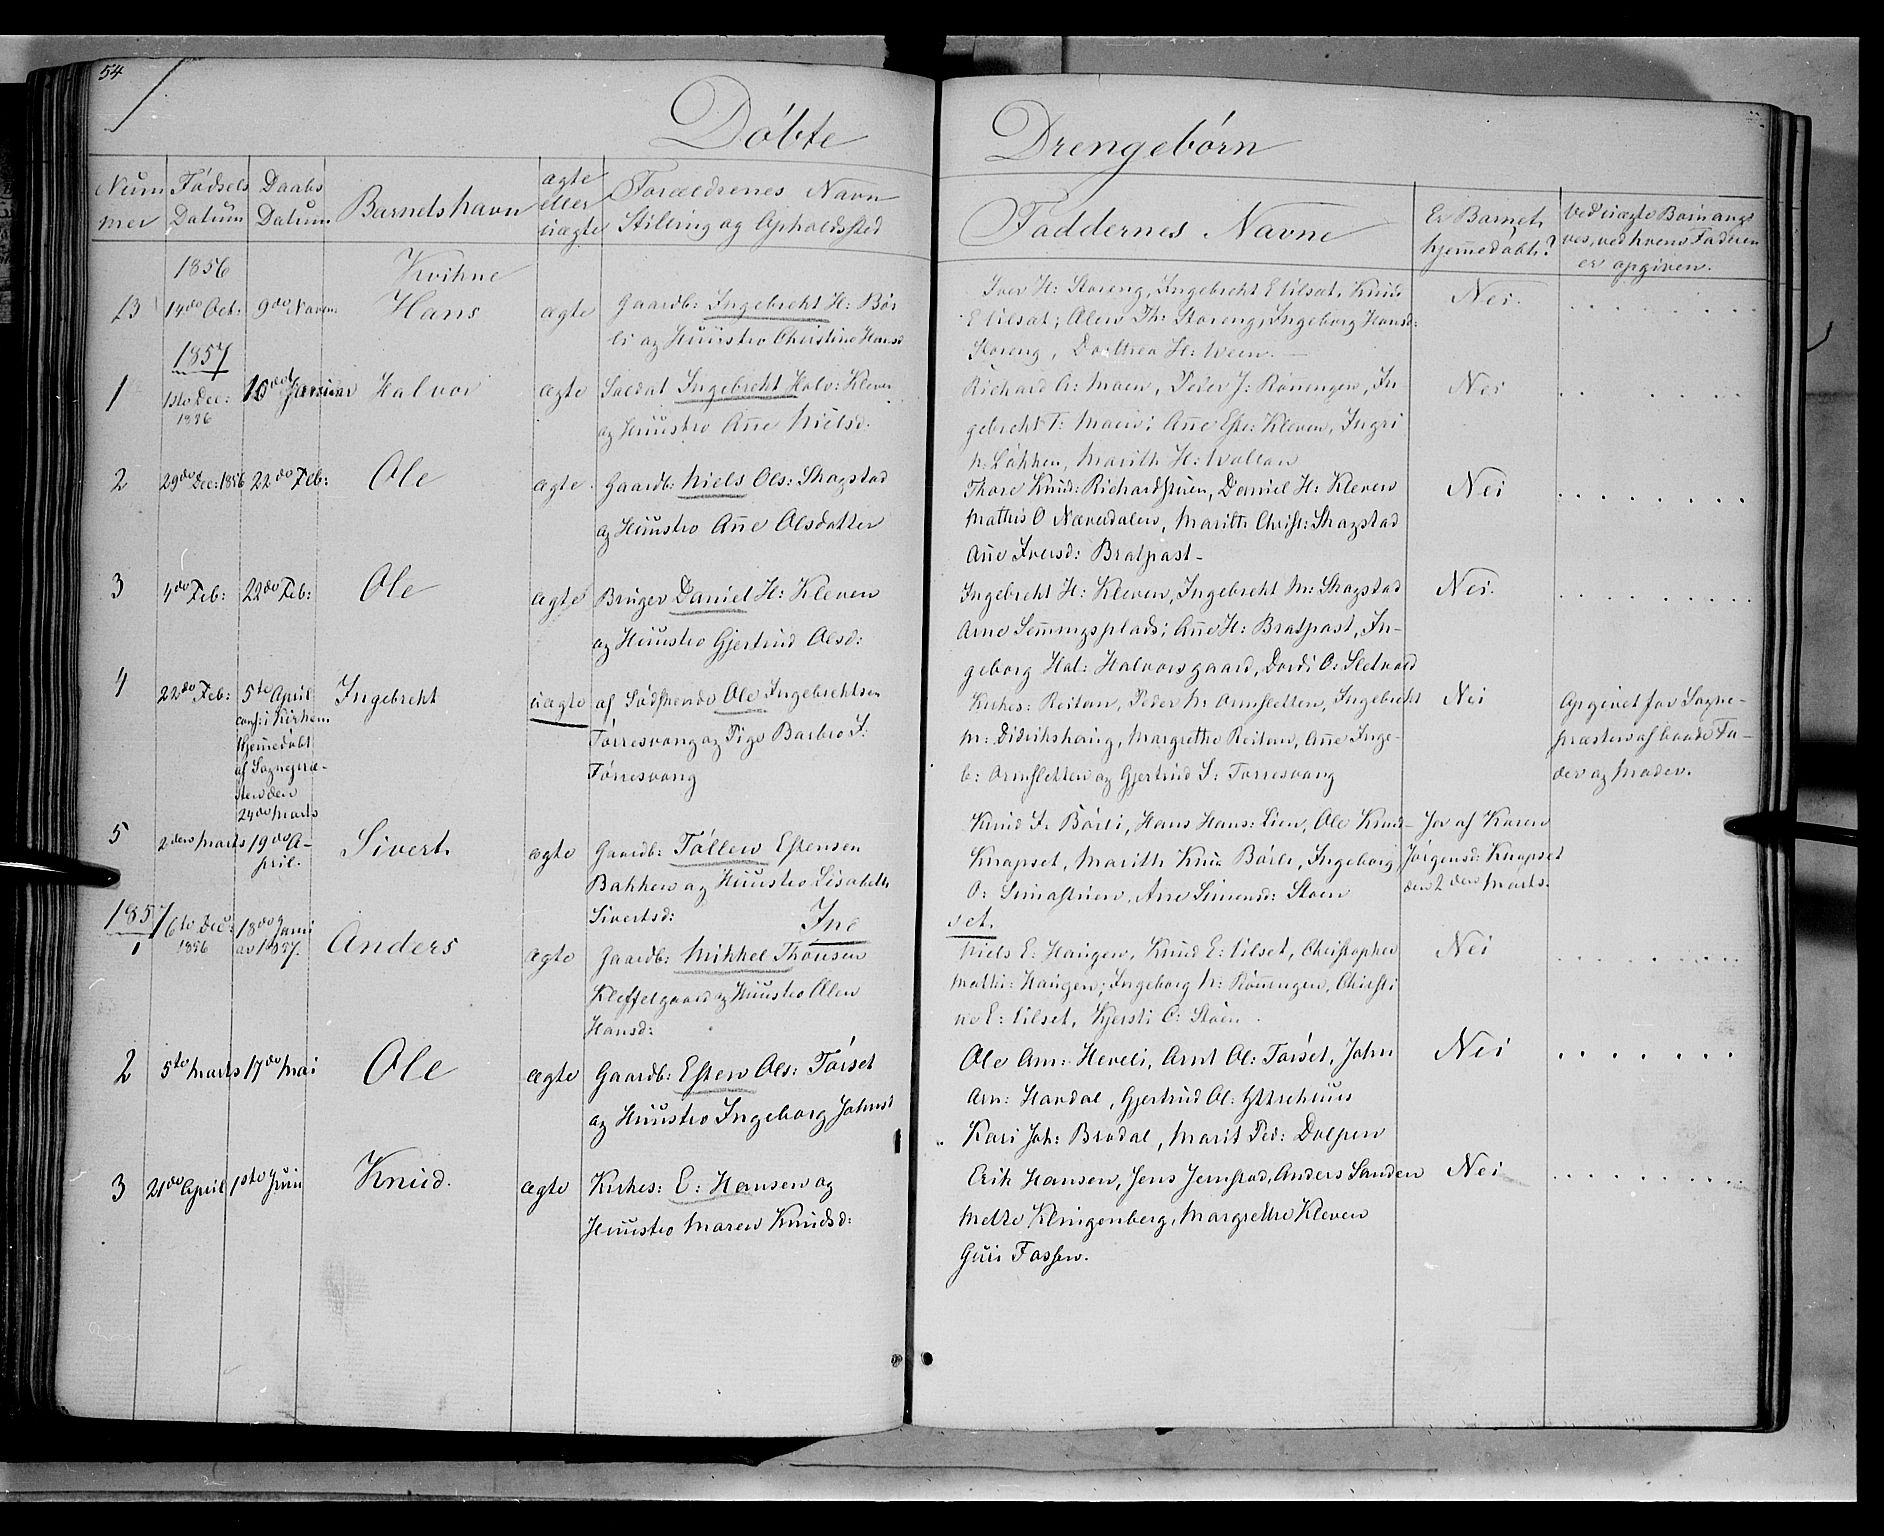 54
Døbte
Drengebørn
Num
mer
Fødsels
Datum
Daabs
Datum
Barnets havn
ægte
eller
uægte
Forældrenes Navn
Stilling og Opholdssted
Faddernes Navne
Er Barnet
hjemmedøbt?
Ved uægte Børn angi
ves, ved hvem Faderen
er opgiven.
1856
Kvikne
13
14do Oct:
9do Novem:
Hans
ægte
Gaardb: Ingebreht H: Bør
li og Huustro Christine Hansd
Iver H: Storeng, Ingebreht E Lilsæt, Knud
E Lilsæt; Alen Th: Storeng, Ingeborg Hansd:
Storeng, Dorthea H:Ween.
Nei.
1857
1
1ste Dec:
1856
Januar
Halvor
ægte
Soldat Ingebreht Halv: Kleven
og Huustro Anne Nielsd.
Richard A: Moen, Peder J: Rønningen, In
gebreht T: Moen; Anne Este: Kleven, Ingri
N: Løkken, Marith H: Wollan
Nei
2
29do Dec: 1856
22do Feb:
Ole
ægte
Gaardb: Niels Ols: Skogstad
og Huustro Anne Olsdatter
Thore Knud: Richardstuen, Daniel H: Kleven
Mathis O Næverdalen, Marith Christ: Skogstad
Ane Iversd: Bratpast
Nei
3
4do Feb:
22do Feb:
Ole
ægte
Bruger Daniel H: Kleven
og Huustro Gjertrud Olsd:
Ingebreht H: Kleven, Ingebreht M: Skogstad
Arne Semmingsplads; Anne H: Bratpast, In-
geborg Hal: Halvorsgaard, Dordi O: Sletvold
Nei.
4
22do Feb:
5te April
conf: i Kirken
Hjemmedøbt
af Sognepræ-
sten den
24do Marts
Ingebreht
uægte
af Sødskende Ole Ingebrehtsen
Tørresvang og Pige Barbro I:
Tørresvang
Kirkes: Reitan, Peder N: Ormsletten, Ingebreht
M: Didrikshaug, Margrethe Reitan, Anne Inge-
b: Ormsletten og Gjertrud I: Torresvang
Nei
Opgivet for Sogne-
præsten af baade Fa-
der og Moder.
5
2den Marts
19do A-
pril.
Sivert.
ægte
Gaardb: Tøllew Estensen
Bakken og Huustro Lisabeth
Sivertsd:
Knud I: Børli, Hans Hans: Lien, Ole Knud-
Knapset, Marith Knud Børli, Ingeborg
O: Simastuen, Ane Simensd: Stoen
Ja af Karen
Jørgensd: Knapset
den 2den Marts.
Ine
set.
1857
1
6te Dec:
1856
18do Janu
ar 1857.
Anders
ægte
Gaardb: Mikkel Thønsen
Kleffelgaard og Huustro Olen
Hansd:
Niels E: Haugen, Knud E: Lilset, Christopher
Mathi: Haugen; Ingeborg N: Rønningen, Christi
ne E: Lilset, Kjersti O: Støen
Nei
2
5te Marts
17do Mai
Ole
ægte
Gaardb: Esten Ols: Tørset
og Huustro Ingeborg Johnsd
Ole Arn: Heveli, Arnt Ol: Tørset, John
Arn: Hordal, Gjertrud Ol: Yttrehuus
Kari Joh: Brødal, Marit Ped: Dolpen
Nei
3
21do April
1ste Juni
Knud.
ægte
Kirkes: E: Hansen og
Huustro Maren Knudsd:
Erik Hansen, Jens Jemstad, Anders Sanden
Mette Klingenberg, Margrethe Kleven
Guri Fossen.
Nei